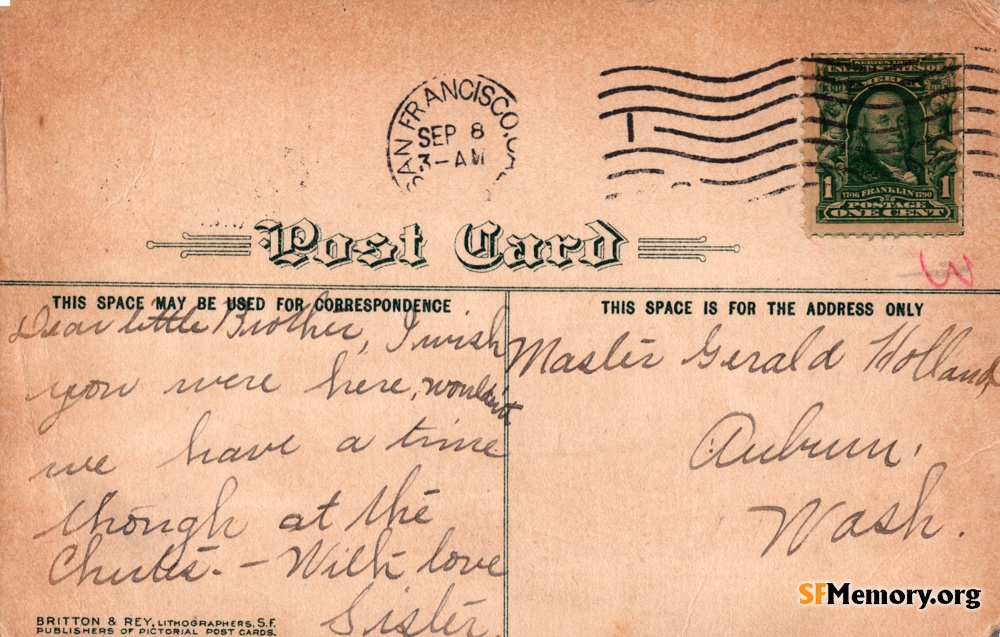 SAN FRANCISCO, CAL
SEP 8
3-AM
1
SERIES 1902
UNITED STATES OF
AMERICA
1 1706 FRANKLIN 1790 1
POSTAGE
ONE CENT
Post Card
3
THIS SPACE MAY BE USED FOR CORRESPONDENCE
Dear little Brother, I wish
you were here, wouldn't
we have a time
though at the
Chutes. - With love
Sister.
BRITTON & REY, LITHOGRAPHERS, S.F.
PUBLISHERS OF PICTORIAL POST CARDS.
THIS SPACE IS FOR THE ADDRESS ONLY
Master Gerald Holland
Auburn,
Wash.
SFMemory.org